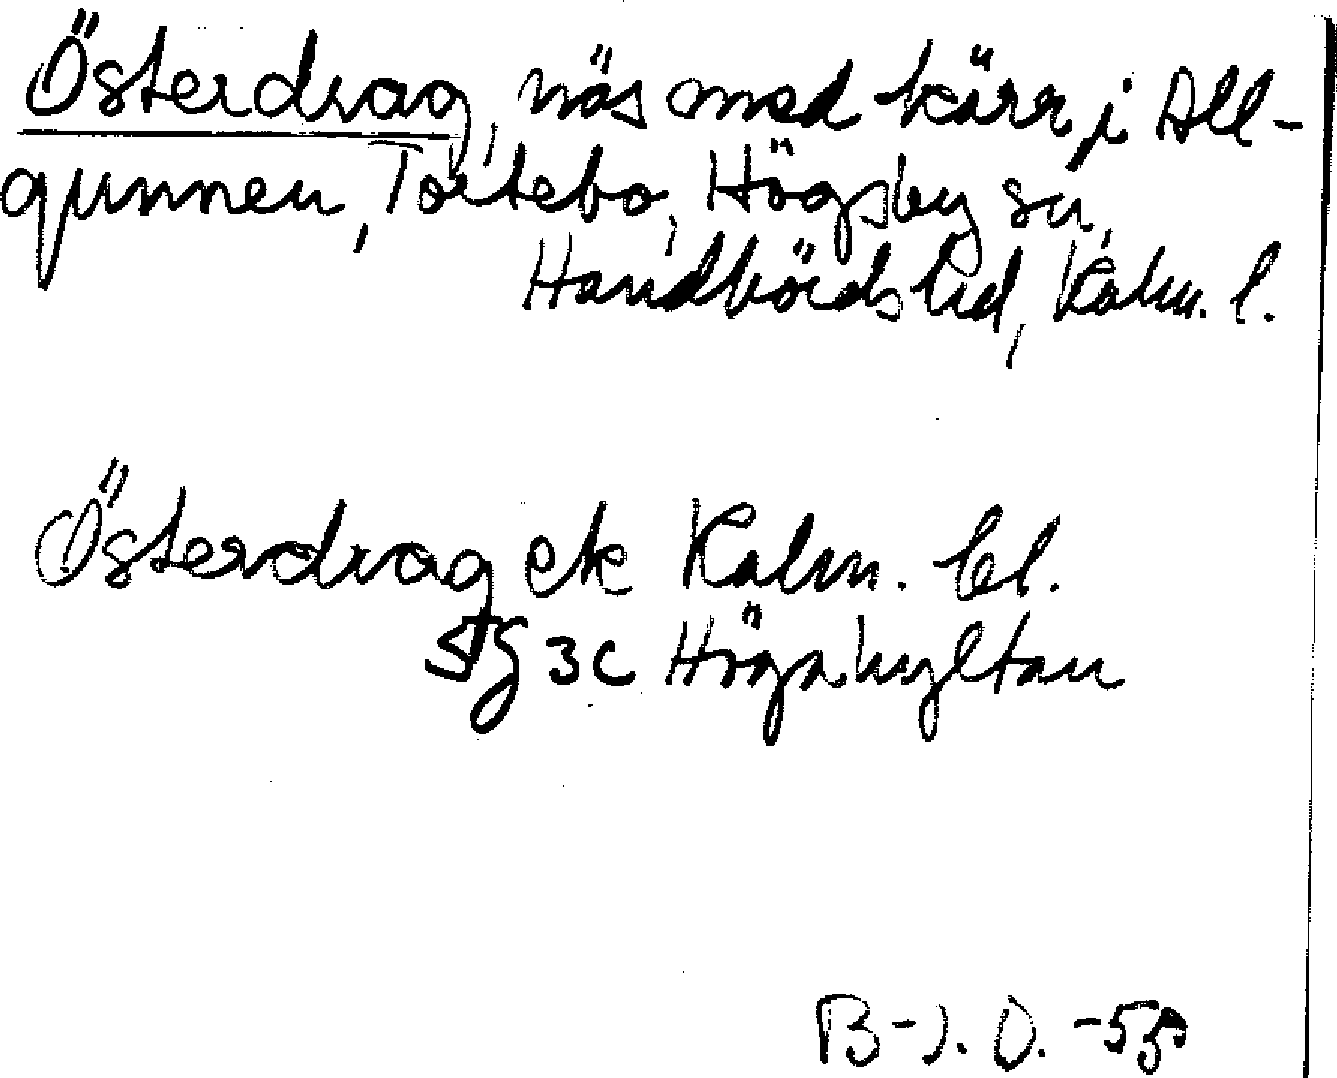 Österdrag, näs med kärr i All-
gunnen, Tortebo, Högsby sn,
Handbörds hd, Kalm. l.
Österdrag ek Kalm. bl.
5G 3c Högahyltan
B-J. O. -58